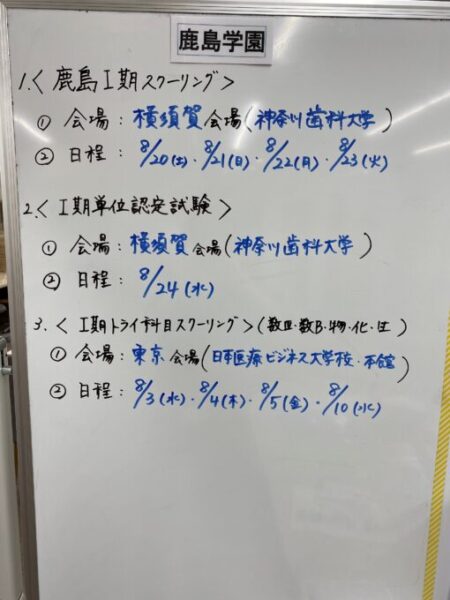 鹿島学園
1.〈鹿島Ⅰ期スクーリング〉
① 会場：横須賀会場(神奈川歯科大学)
② 日程：8/20(土)・8/21(日)・8/22(月)・8/23(火)
2.〈Ⅰ期単位認定試験〉
① 会場：横須賀会場(神奈川歯科大学)
② 日程：8/24(水)
3.〈Ⅰ期トライ科目スクーリング〉(数Ⅲ・数B・物・化・生)
① 会場：東京会場(日本医療ビジネス大学校・本館)
② 日程：8/3(水)・8/4(木)・8/5(金)・8/10(水)